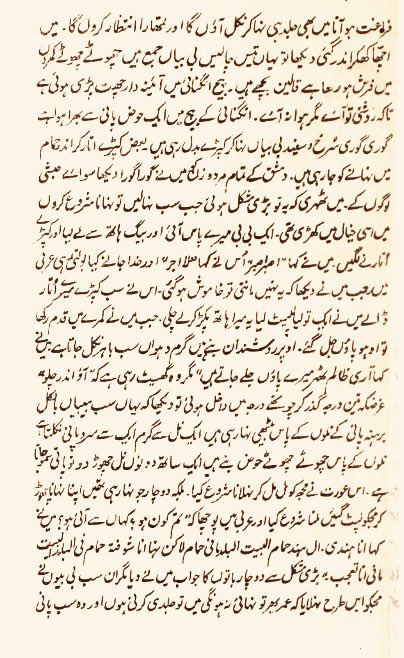 فراغت ہو آنا میں بھی جلد ہی نہا کر نکل آؤں گا اور تمھارا انتظار کروں گا۔ میں
اچھا کہکر اندر گئی دیکھا تو یہاں تیس چالیس بی بیاں جمع ہیں چھوٹے چھوٹے کمروں
میں فرش ہو رہا ہے قالین بچھے ہیں۔ بیچ انگنائی میں آئینہ دار چھت پڑی ہوئی ہے
تاکہ روشنی تو آئے مگر ہوا نہ آئے۔ انگنائی کے بیچ میں ایک حوض پانی سے بھرا ہوا ہے
گوری گوری سُرخ و سفید بی بیاں نہا کر کپڑے بدل رہی ہیں بعض کپڑے اتار کر اندر حمام
میں نہانے کو جا رہی ہیں۔ دمشق کے تمام مرد و زن میں نے گورا گورا دیکھا سوائے حبشی
لوگوں کے۔ میں ٹھہری کہ یہ تو بڑی مشکل ہوئی جب سب نہالیں تو نہانا شروع کروں
میں اسی خیال میں کھڑی تھی۔ ایک بی بی میرے پاس آئی اور بیگ ہاتھ سے لے لیا اور کپڑے
اتارنے لگیں۔ میں نے کہا اُس نے کہا اور خدا جانے کیا بولتی ہی عربی
میں جب میں نے دیکھا کہ یہ نہیں مانتی تو خاموش ہو گئی۔ اس نے سب کپڑے میرے اتار
ڈالے میں نے ایک تولیا لپیٹ لیا یہ میرا ہاتھ پکڑ کر لے چلی۔ جب میں نے کمرے میں قدم رکھا
تو اوہو پاؤں جل گئے۔ اوپر روشندان بنے ہیں گرم دھواں سب باہر نکل جاتا ہے میں نے
کہا آری ظالم ٹھہر میرے پاؤں جلے جاتے ہیں مگر وہ گھسیٹ رہی ہے کہ آؤ اندر چلو
غرضکہ تین درجہ گذر کر چوتھے درجہ میں داخل ہوئی تو دیکھا کہ یہاں سب بیبیاں بالکل
برہنہ پانی کے نلوں کے پاس بیٹھی نہا رہی ہیں ایک نل سے گرم ایک سے سرد پانی نکلتا ہے
نلوں کے پاس چھوٹے چھوٹے حوض بنے ہیں ایک ساتھ دونوں نل چھوڑ دو تو پانی سمو جاتا
ہے۔ اس عورت نے مجھ کو مل مل کر نہلانا شروع کیا۔ بلکہ دو چار جو نہا رہی تھیں اپنا نہانا چھوڑ
کر مجھکو لپٹ گئیں ملنا شروع کیا اور عربی میں پوچھا کہ تم کون ہو کہاں سے آئی ہو؟ میں نے
کہا انا ہندی۔ ال ہند حمام البیت البلد پانی حمام لاکن نہانا انا شوفتہ حمام فی البلد البیت
مائی انا تعجب یہ بڑی مشکل سے دو چار باتوں کا جواب میں نے دیا مگر ان سب بی بیوں نے
مجھکو اس طرح نہلایا کہ عمر بھر تو نہائی نہ ہونگی میں تو جلدی کرتی ہوں اور وہ سب پانی